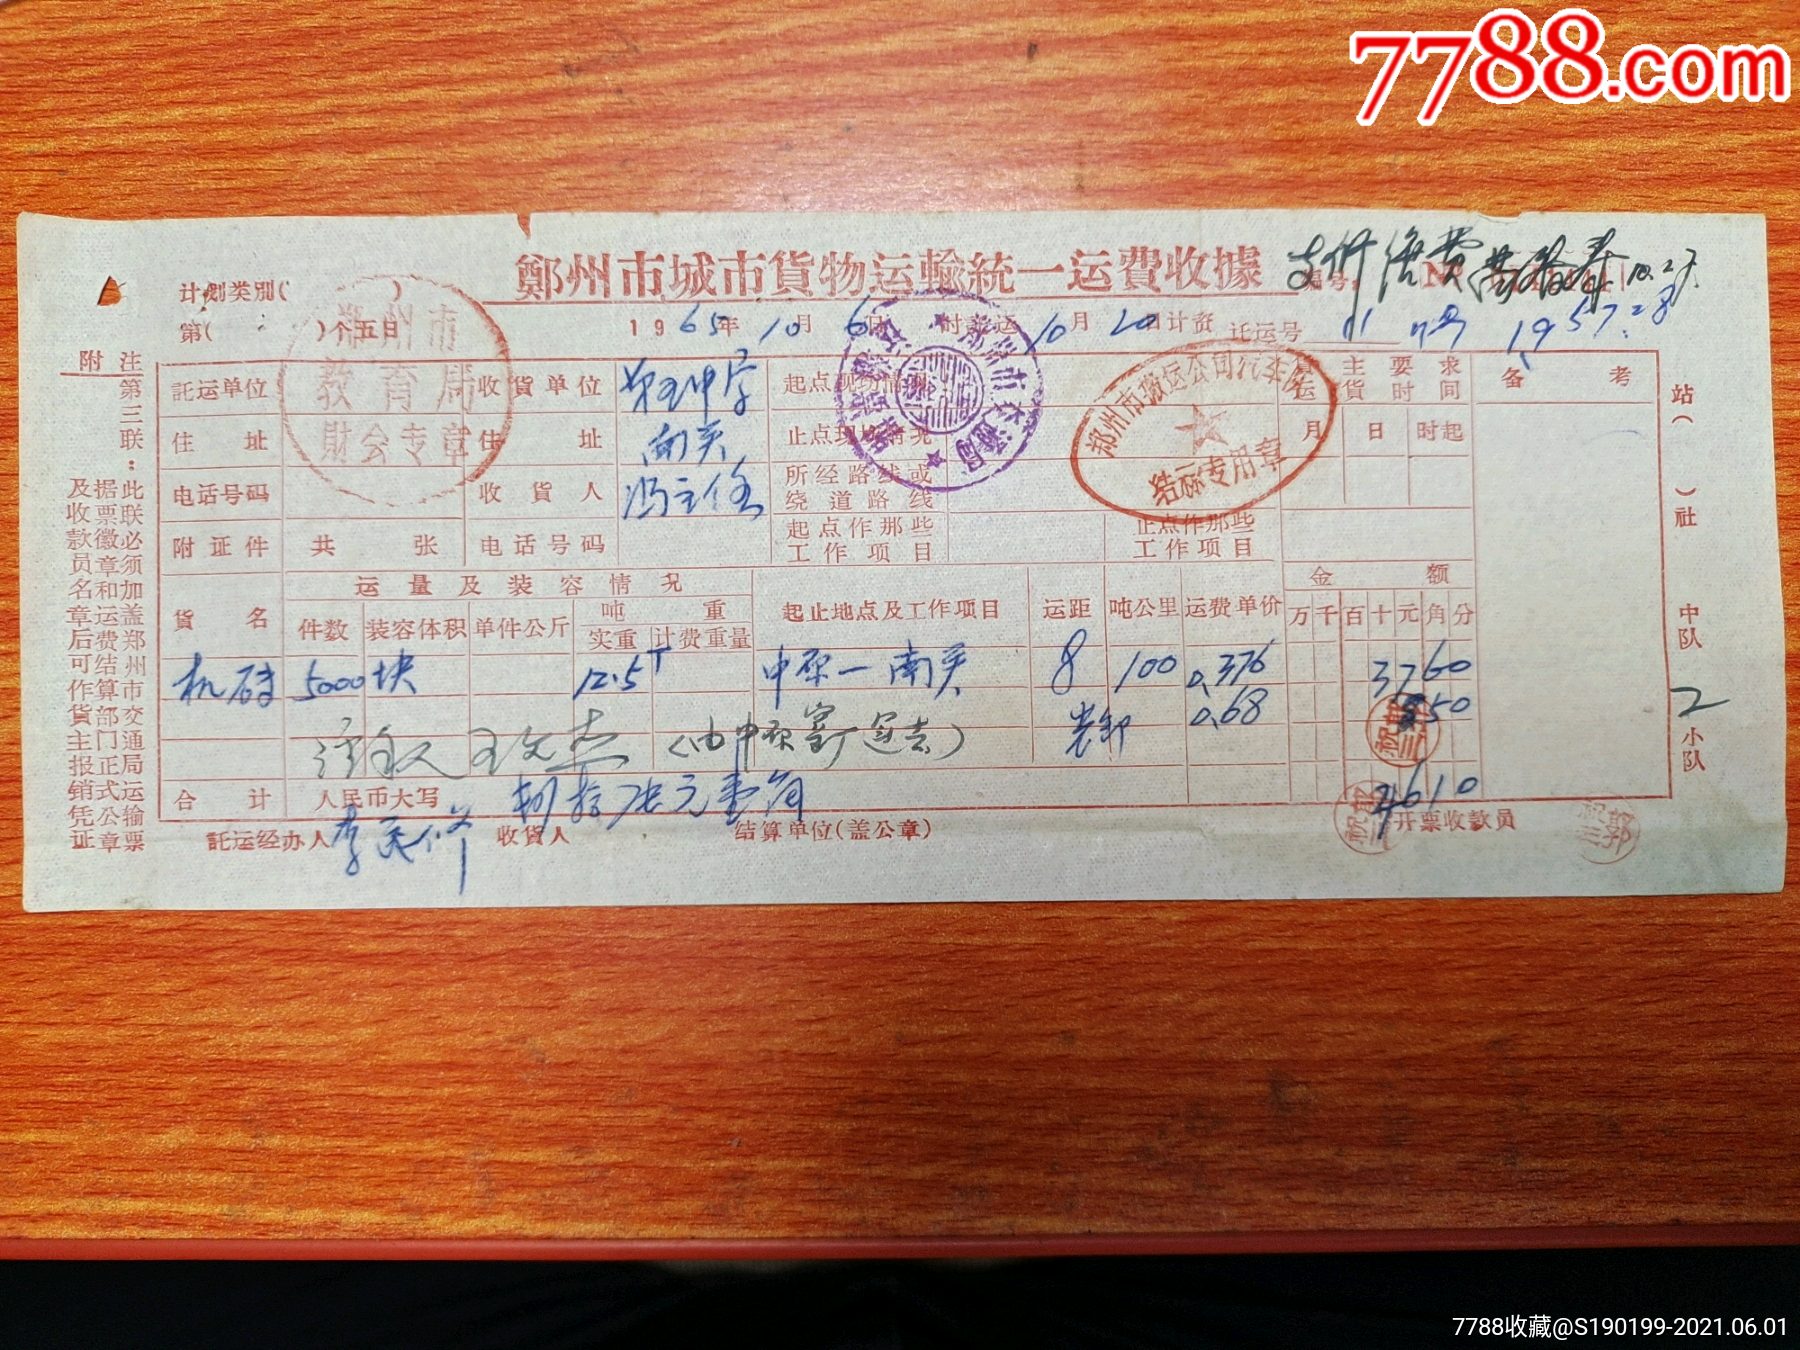 7788.com
鄭州市城市貨物运輸統一运費收據
支付 运费
10.27
計划类別( )
第( )个五日
1965年 10月 6日 时 运 10月 20日计資 託运号 11
鄭州市
教育局
財会专章
郑州市搬运公司汽车队
结
专用章
附注
第三联:此联必须加盖郑州市交通局运輸票
据票徽章和运費結算部門正式公章
及收款員名章后可作貨主报銷凭证
託运单位 收貨单位 中学 起点现场情况 主要求 备考
貨时間
住址 住址 南关 止点现场情况 月 日 时起
电话号码 收貨人 冯主任 所经路线或
绕道路线
附证件 共 张 电话号码 起点作那些
工作项目 止点作那些
工作项目
貨名 运量及装容情况 起止地点及工作项目 运距 吨公里 运费单价 金額
件数 装容体积 单件公斤 吨重 万千百十元角分
实重 计费重量
机砖 5000块 12.5T 中原一南关 8 100 0.376 3760
装卸 0.68 850
(由中原窑厂运去)
合計 人民币大写 肆拾陆元壹角 4610
託运经办人 收貨人 结算单位(盖公章) 开票收款员
站( )社 中队 2 小队
7788收藏@S190199-2021.06.01